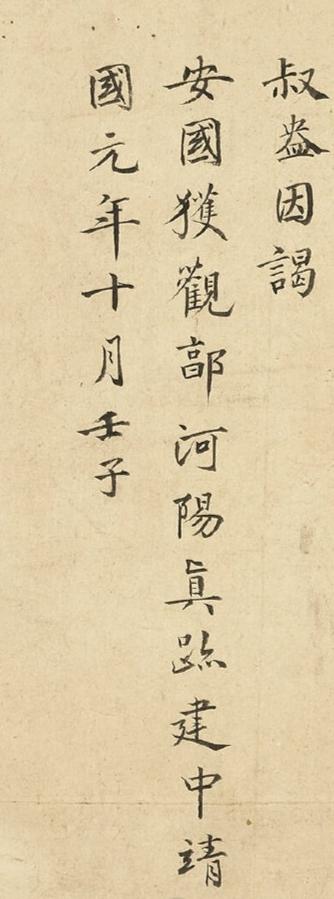 叔盎因謁
安國獲觀郭河陽真跡建中靖
國元年十月壬子